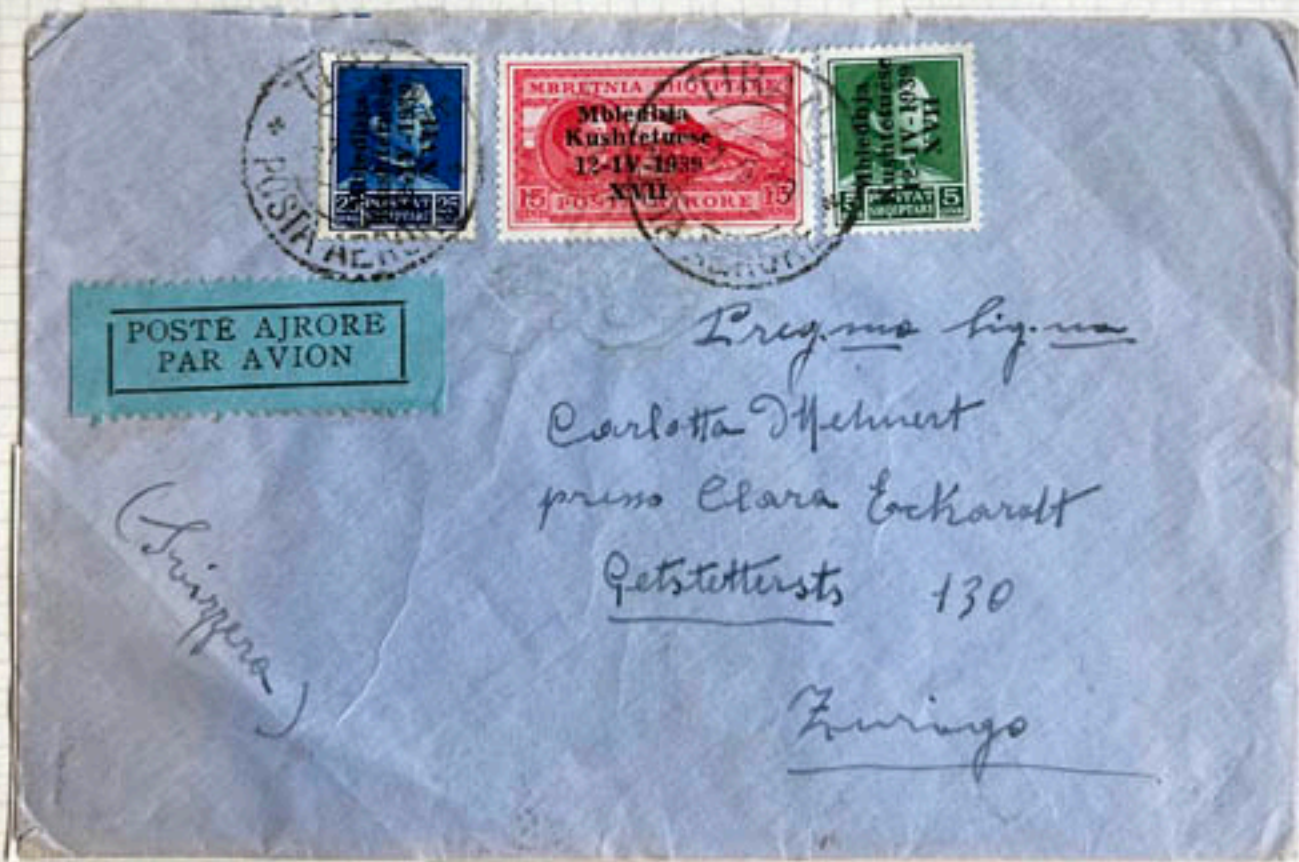 TIRANË
* POSTA AJRORE *
Mbledhja
Kushtetuese
12-IV-1939
XVII
25 POSTAT 25
SHQIPTARE
MBRETNIA SHQIPTARE
Mbledhja
Kushtetuese
12-IV-1939
XVII
15 POSTA AJRORE 15
TIRANË
AJRORE *
Mbledhja
Kushtetuese
12-IV-1939
XVII
5 POSTAT 5
SHQIPTARE
POSTË AJRORE
PAR AVION
Preg.ma Sig.na
Carlotta Mehnert
presso Clara Eckardt
Getstettersts 130
Zurigo
(Svizzera)